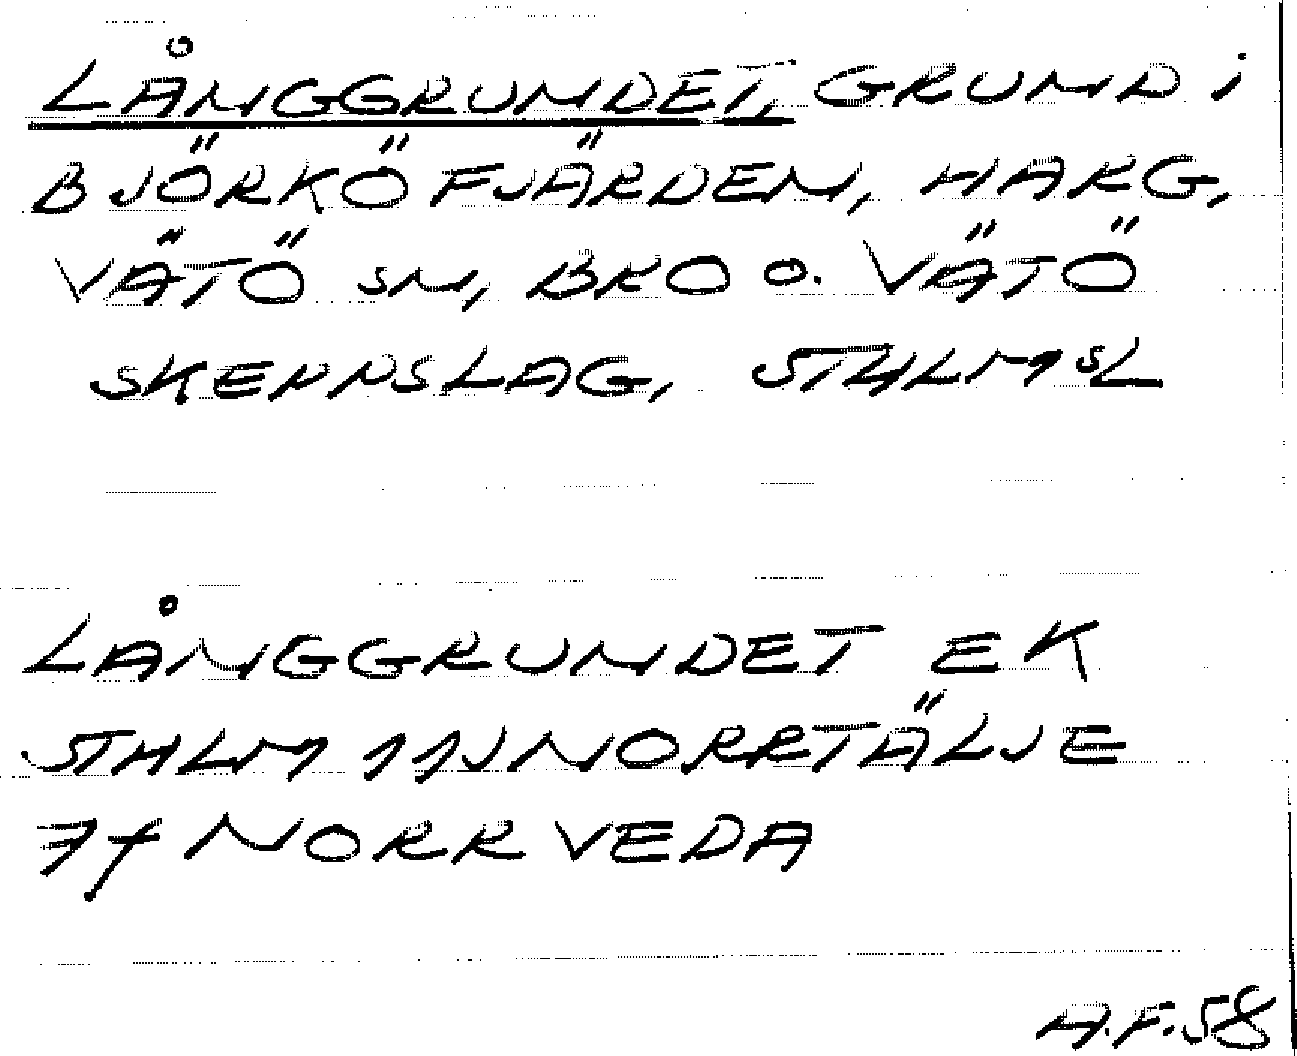 LÅNGGRUNDET, GRUND i
BJÖRKÖFJÄRDEN, HARG,
VÄTÖ SN, BRO O. VÄTÖ
SKEPPSLAG, STHLMSL
LÅNGGRUNDET EK
STHLM 11J NORRTÄLJE
7f NORRVEDA
A.F.58